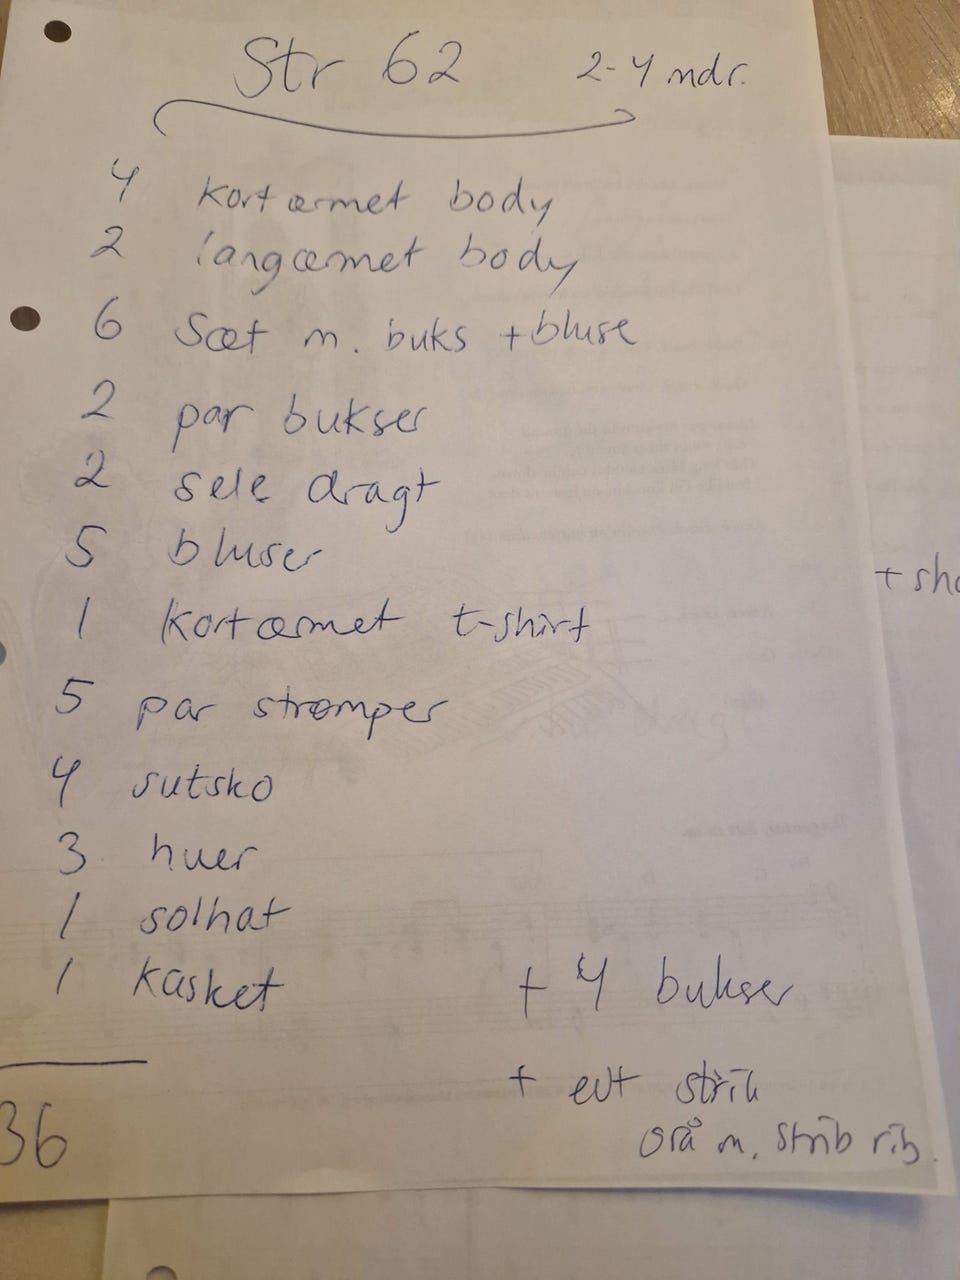 Str 62 2-4 mdr.
4 kortærmet body
2 langæmet body
6 Sæt m. buks + bluse
2 par bukser
2 sele dragt
5 bluser
1 kortærmet t-shirt
+ sho
5 par strømper
4 sutsko
3 huer
1 solhat
1 kasket + 4 bukser
+ evt strik
36 grå m. strib rib.